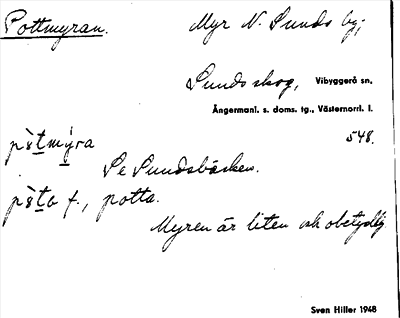 Pottmyran. Myr N. Sunds by;
Sundsskog, Vibyggerå sn.
Ångermanl. s. doms. tg., Västernorrl. l.
548.
pòt̲mýra
Se Sundsbäcken.
pòt̲a f., potta.
Myren är liten och obetydlig
Sven Hiller 1948